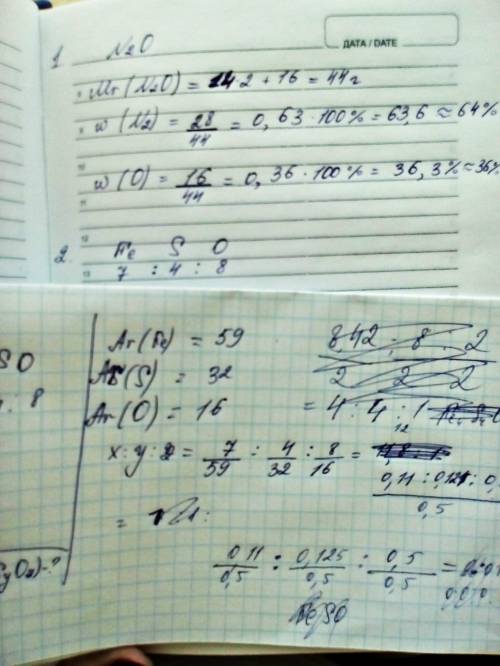 ДАТА / DATE
1 N2O
Mr (N2O) = 14·2 + 16 = 44г
w (N2) = 28/44 = 0,63·100% = 63,6 ≈ 64%
w (O) = 16/44 = 0,36·100% = 36,3% ≈ 36%
2. Fe S O
7 : 4 : 8
SO
: 8
Ar (Fe) = 59
Ar (S) = 32
Ar (O) = 16
= 4 : 4 : 1
x : y : z = 7/59 : 4/32 : 8/16 =
0,11 : 0,125 : 0,
0,5
=
0,11/0,5 : 0,125/0,5 : 0,5/0,5 =
yOz) - ?
FeSO